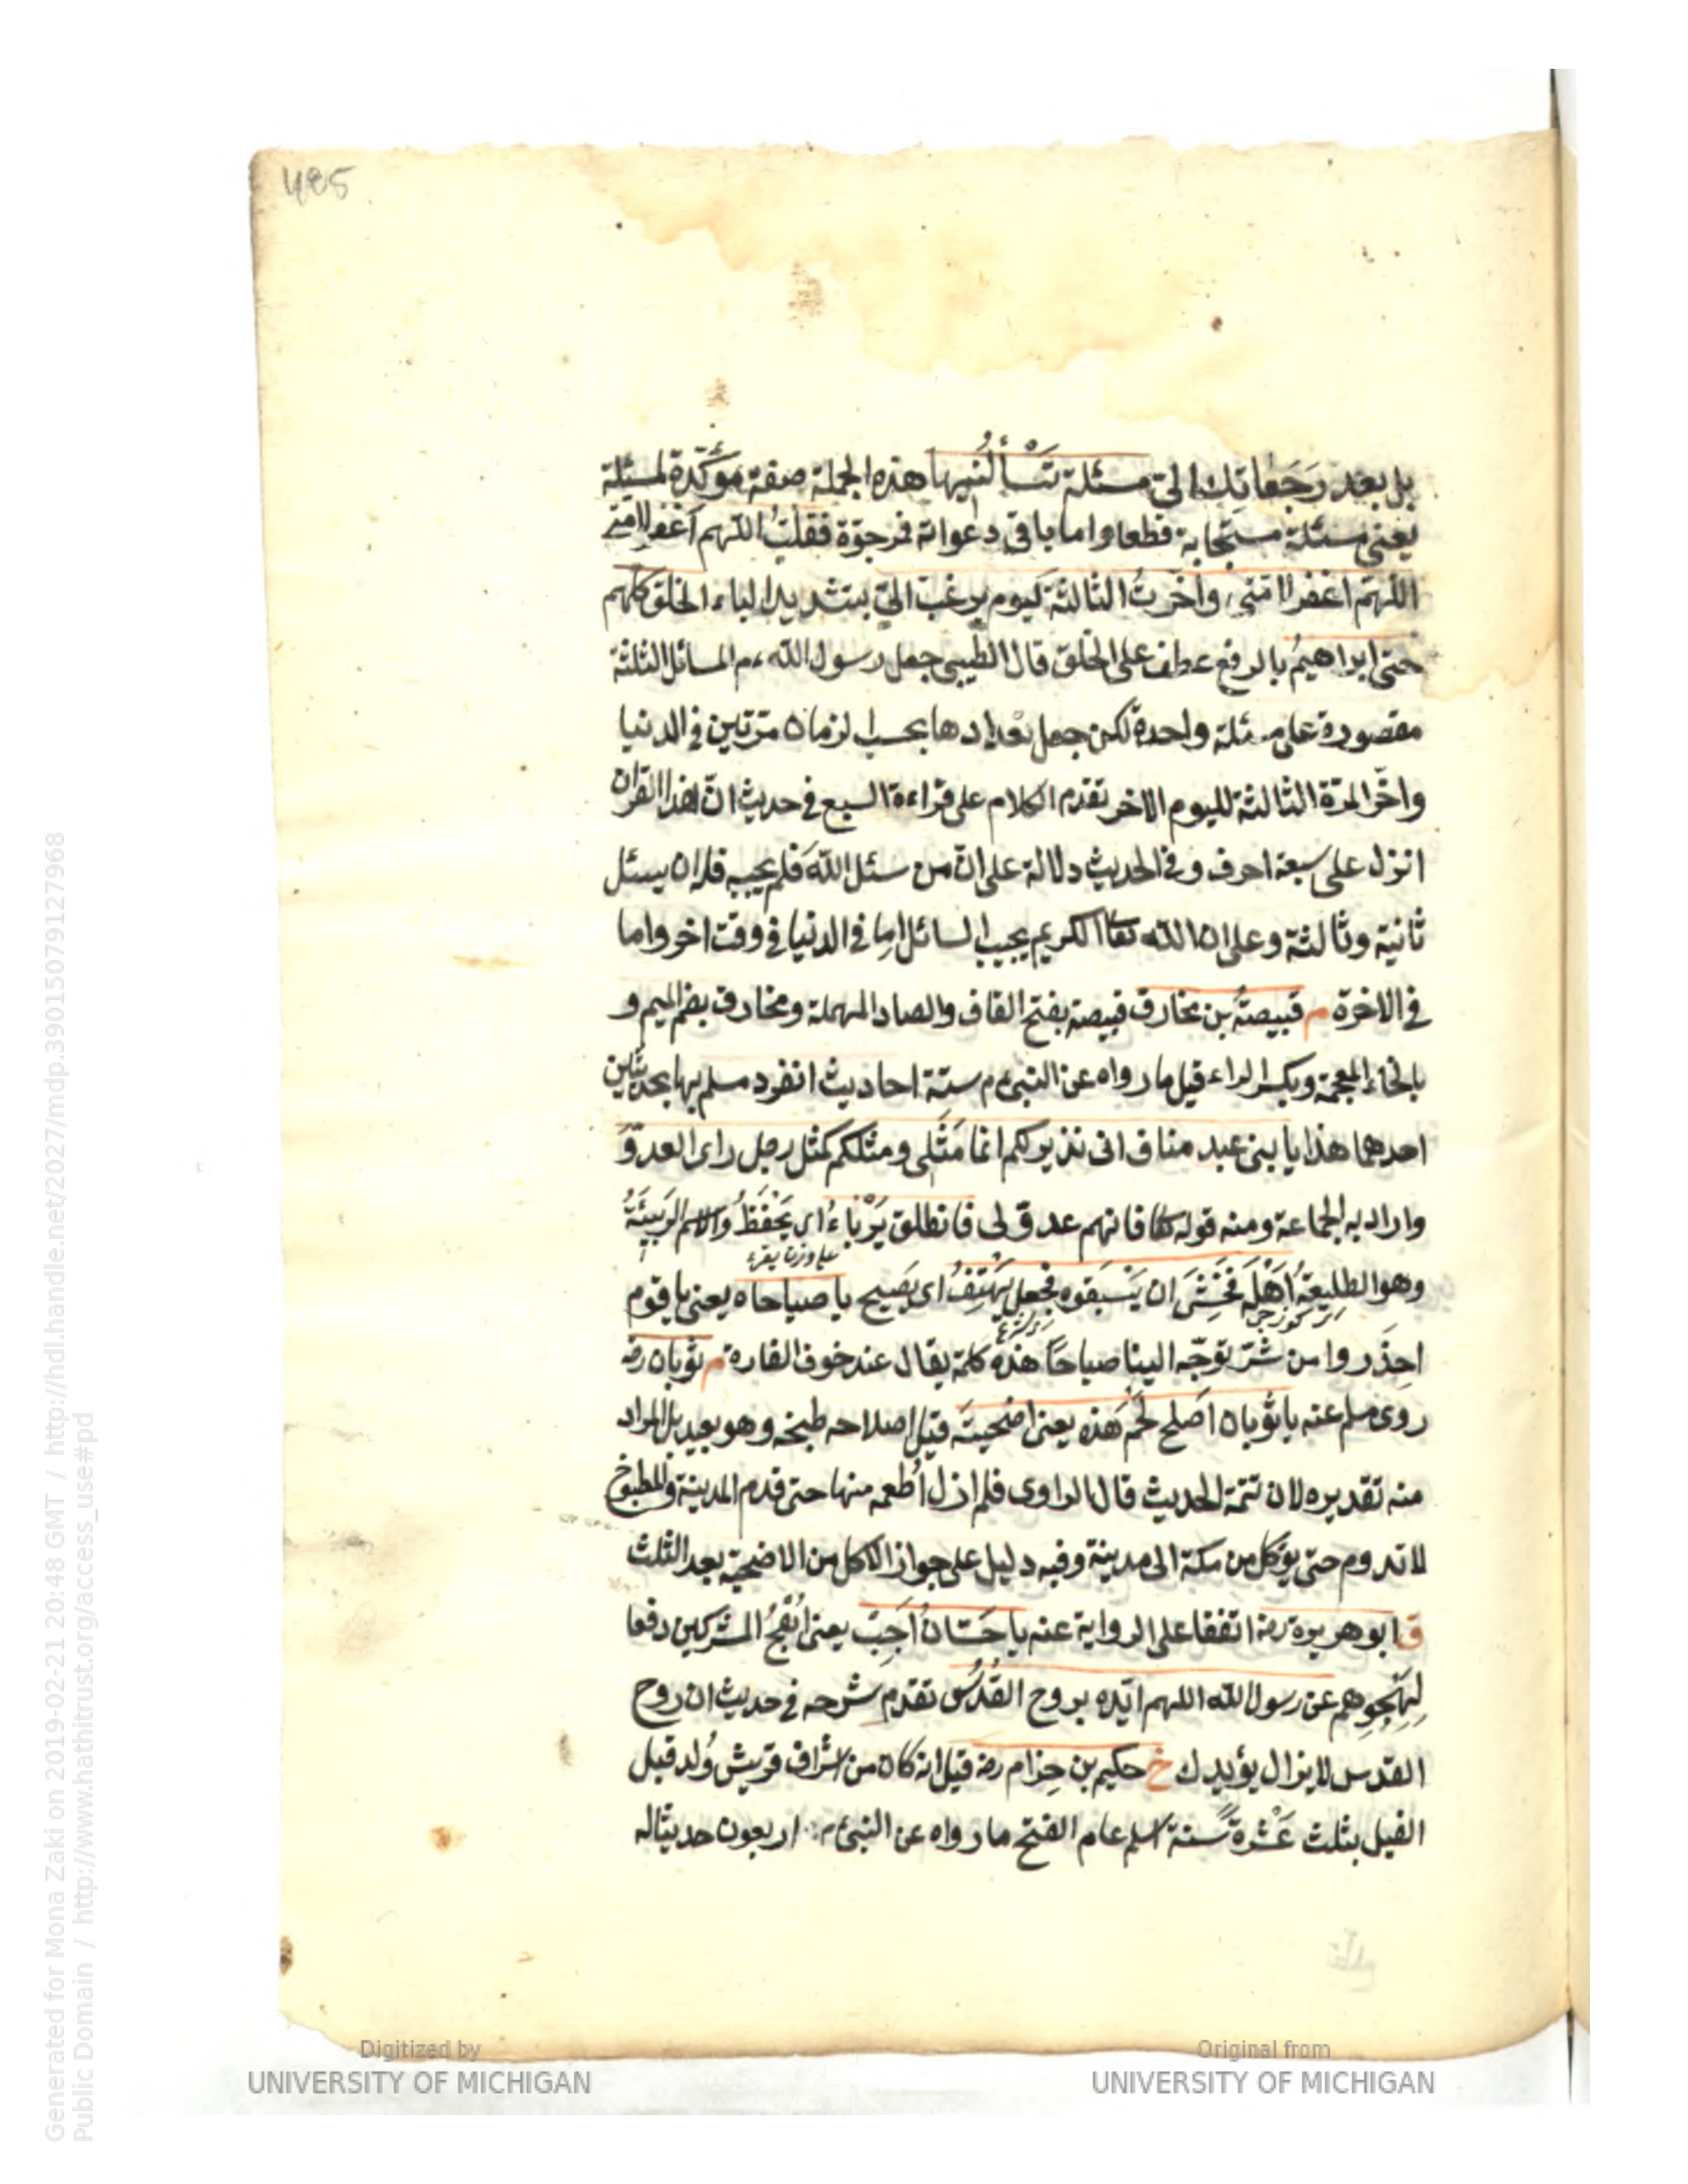 485
بل بعدد رَجَعاتِك الىّ مسئلة تَسْأَلُنيها هذه الجملة صفة مؤكّدة لمسئلة
يعنى مسئلة مستجابة قطعا واما باقى دعواته فمرجوّة فقلتُ اللّهم اغفر لامتى
اللّهمّ اغفر لامتى وأخّرتُ الثالثة ليوم يرغب الىّ بتشديد الياء الخلق كلهم
حتى ابراهيمُ بالرفع عطف على الخلق قال الطيبى جعل رسول الله ءم المسائل الثلثة
مقصورة على مسئلة واحدة لكن جعل تعدادها بحسب الزمان مرّتين فى الدنيا
واخّر المرّة الثالثة لليوم الاخر تقدم الكلام على قراءة السبع فى حديث انّ هذا القران
انزل على سبعة احرف وفى الحديث دلالة على انّ من سئل اللّه فلم يجبه فله ان يسئل
ثانية وثالثة وعلى ان اللّه تعا الكريم يجيب السائل اما فى الدنيا فى وقت اخر واما
فى الاخرة م قبيصةُ بن مخارق قبيصة بفتح القاف والصاد المهملة ومخارق بضم الميم و
بالخاء المعجمة وبكسر الراء قيل ما رواه عن النبى ءم ستة احاديث انفرد مسلم بها بحديثين
احدهما هذا يا بنى عبد مناف انى نذير لكم انما مَثَلى ومثلكم كمثل رجل راى العدوّ
واراد به الجماعة ومنه قوله تعا فانهم عدوّ لى فانطلق يَرْبَاءُ اى يَحْفَظُ والاسم الرَبيئَةُ
على وزن يقرء
وهو الطليعةُ أهْلَه فخَشِىَ ان يَسْبَقوه فجعل يَهْتِفُ اى يَصيح يا صباحاه يعنى يا قوم
احذَروا من شرّ توجّه الينا صباحًا هذه كلمة يقال عند خوف الغارة م ثوبان رضه
روى مسلم عنه يا ثوبان اَصلح لحَمَ هَذه يعنى اضحيتَه قيل اصلاحه طبخه وهو بعيد بل المراد
منه تقديره لان تتمة الحديث قال الراوى فلم ازل اُطعمه منها حتى قدم المدينة والمطبوخ
لا تدوم حتى يؤكل من مكة الى مدينة وفيه دليل على جواز الاكل من الاضحية بعد الثلث
ق ابو هريرة رضه اتفقا على الرواية عنه يا حَسّانُ اَجِبْ يعنى اُهْجُ المشركين دفعا
لِهَجْوِهم عن رسول اللّه اللهم ايّده بروح القُدُس تقدم شرحه فى حديث ان روح
القدس لا يزال يؤيدك خ حكيم بن حِزام رضه قيل انه كان من اشراف قريش وُلد قبل
الفيل بثلث عَشْرةَ سنة اسلم عام الفتح ما رواه عن النبى ءم اربعون حديثا له
Digitized by
UNIVERSITY OF MICHIGAN
Original from
UNIVERSITY OF MICHIGAN
Generated for Mona Zaki on 2019-02-21 20:48 GMT / http://hdl.handle.net/2027/mdp.39015079127968
Public Domain / http://www.hathitrust.org/access_use#pd